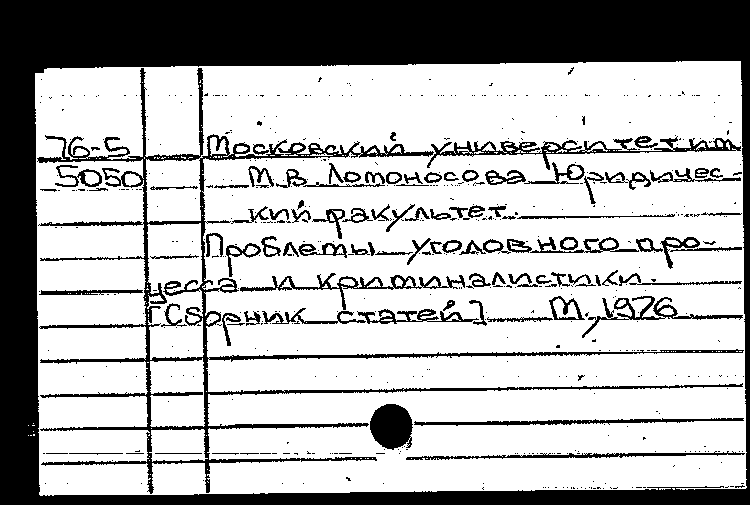 76-5 Московский университет им
5050 М.В. Ломоносова Юридичес-
кий факультет.
Проблемы уголовного про-
цесса и криминалистики.
[Сборник статей] М., 1976